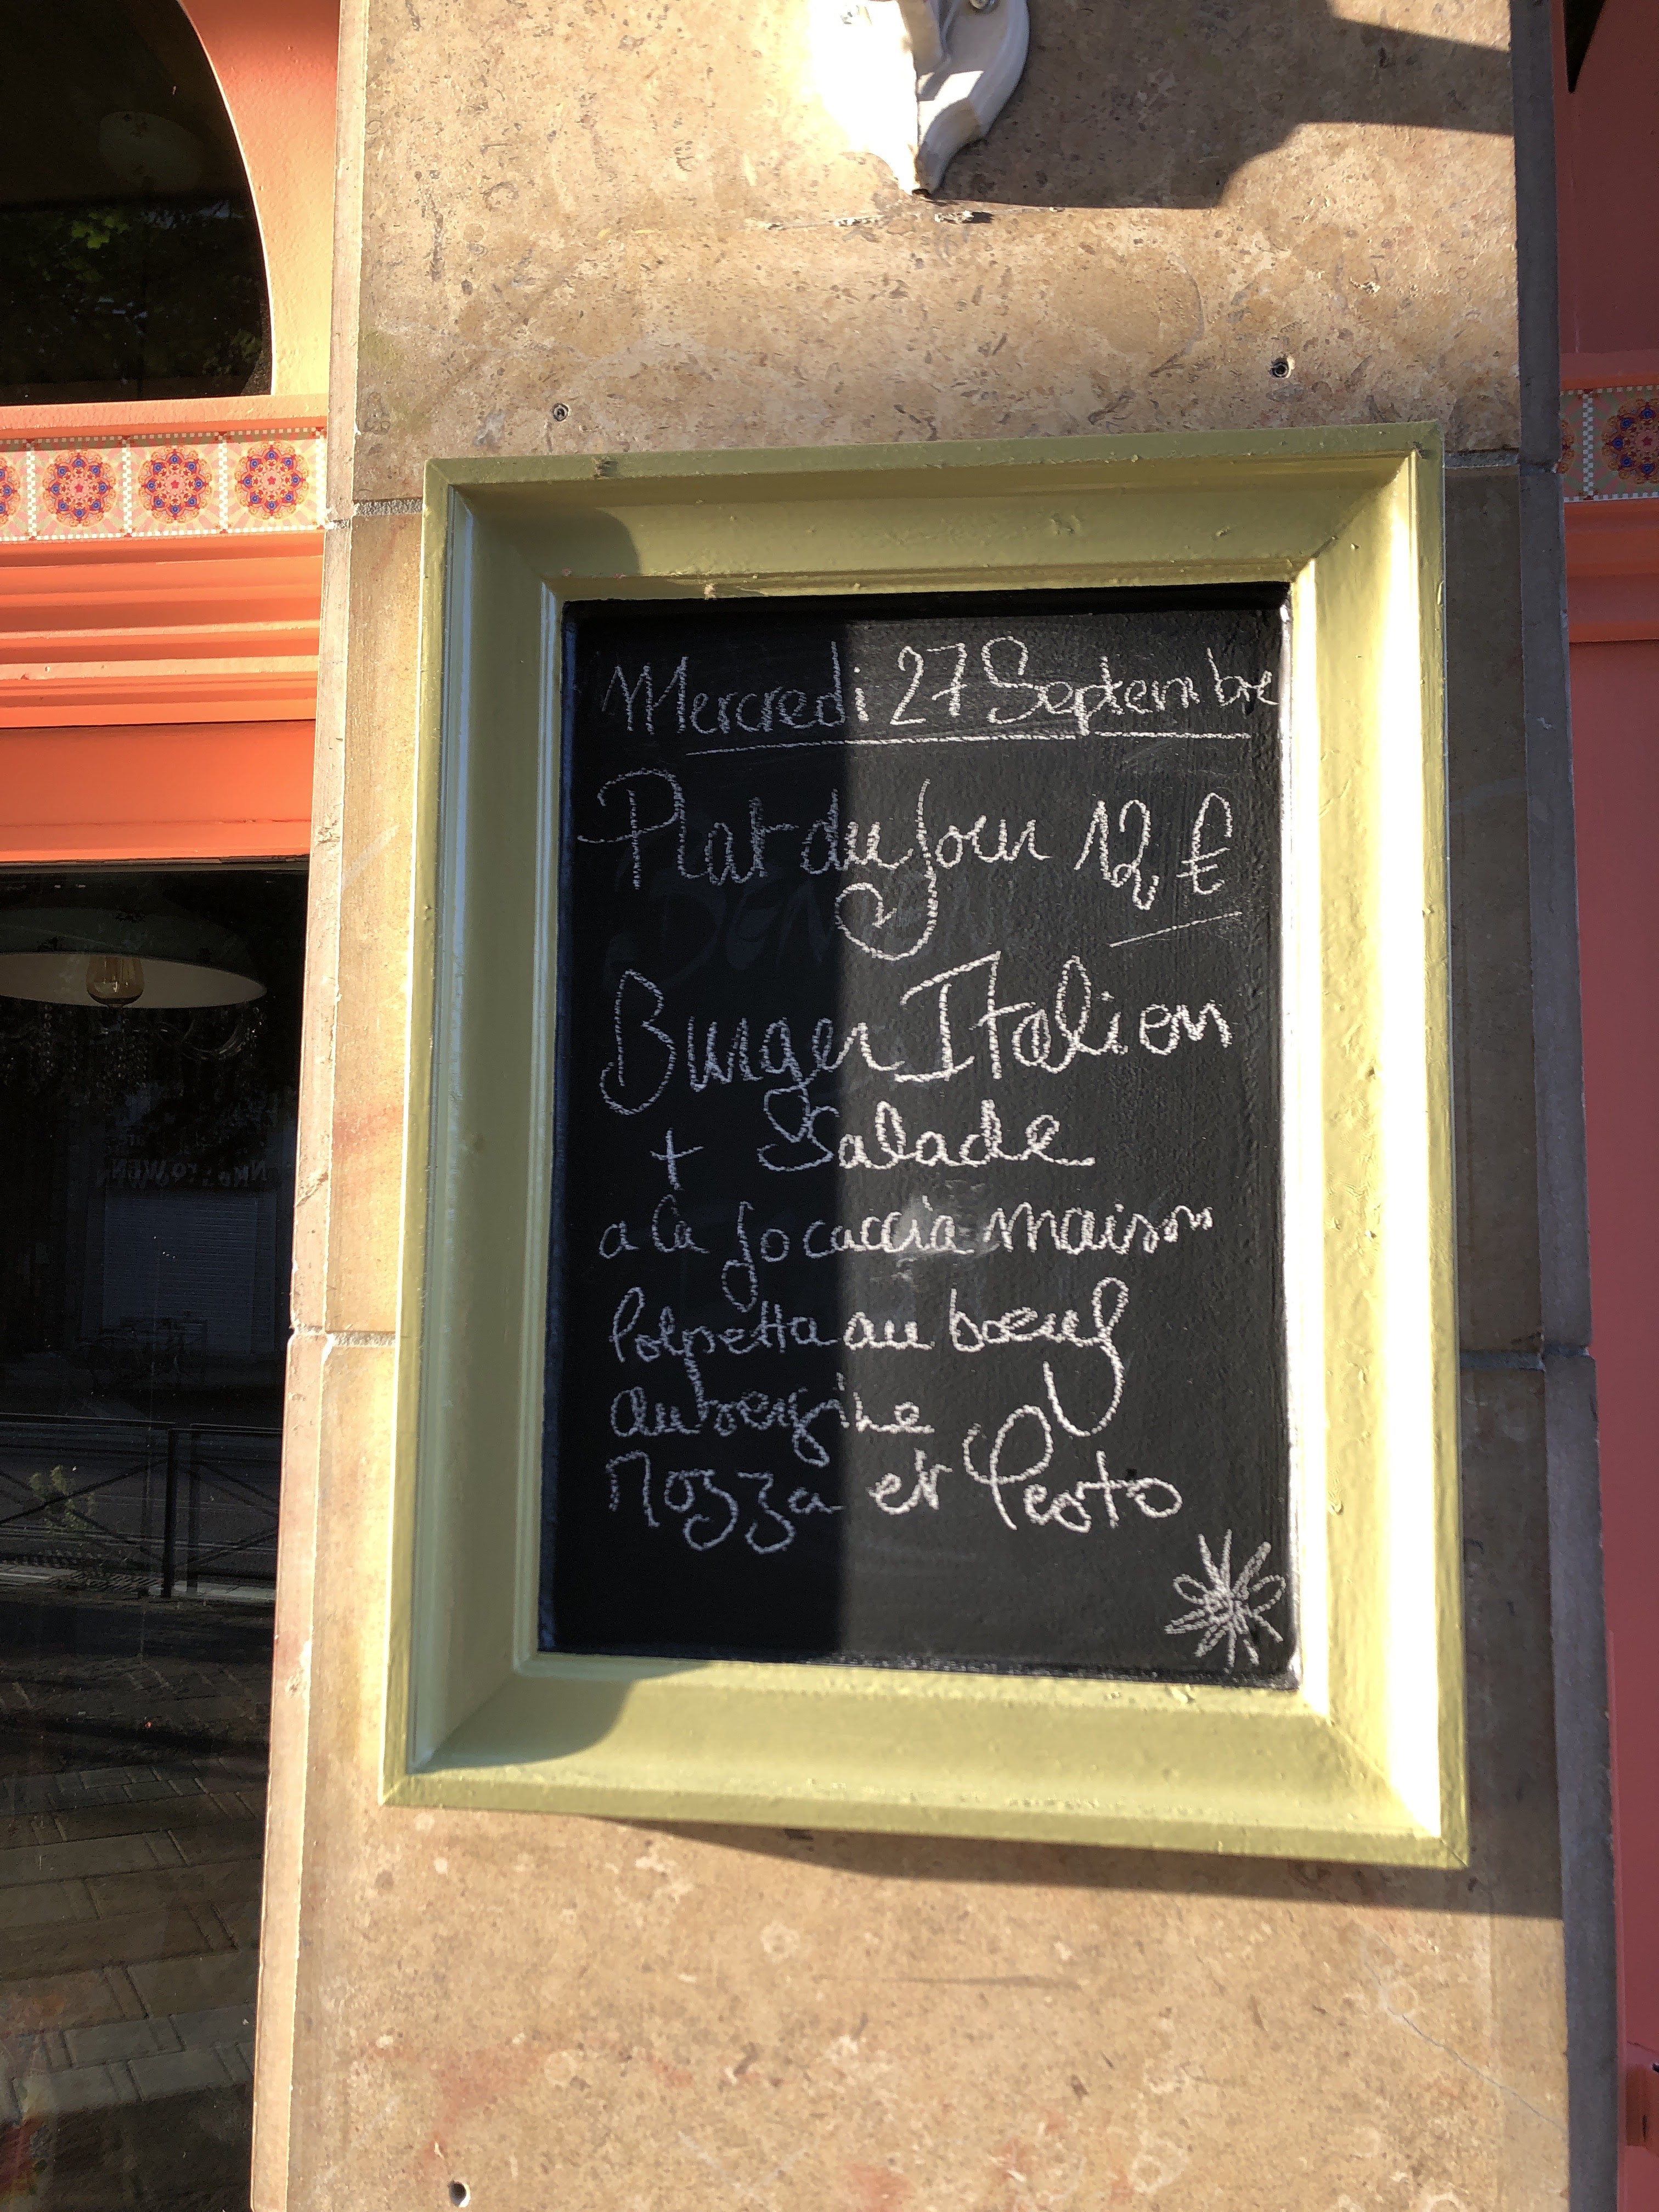 Mercredi 27 Septembre
Plat du Jour 12 €
Burger Italien
+ Salade
a la focaccia maison
Polpetta au bœuf
aubergine
Mozza et Pesto